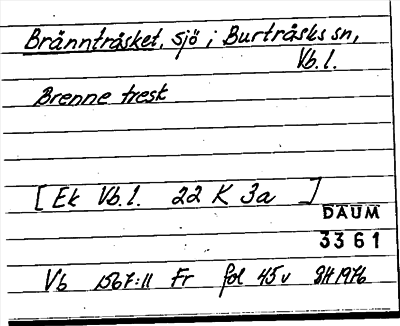 Brännträsket, sjö i Burträsks sn,
Vb.l.
Brenne tresk
[Ek Vb.l. 22 K 3a ]
DAUM
3361
Vb 1567:11 Fr fol 45v BH 1976